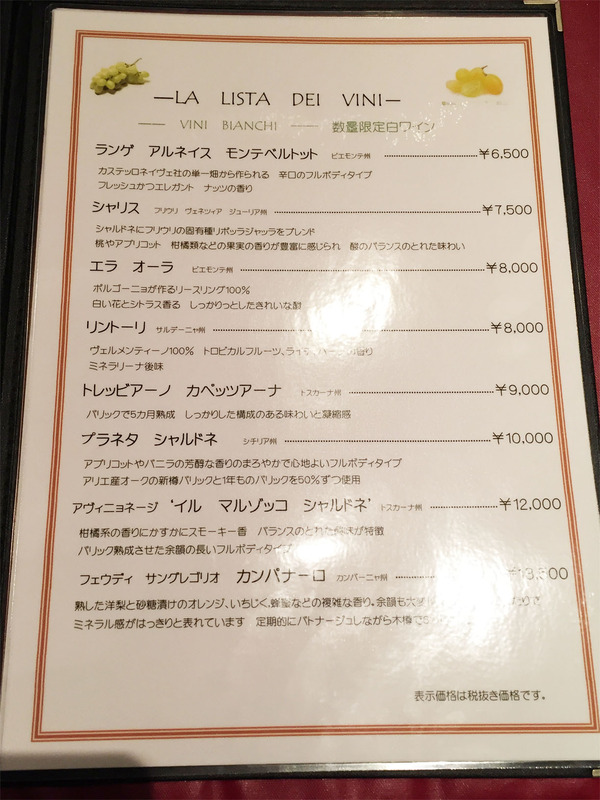 —LA LISTA DEI VINI—
—— VINI BIANCHI —— 数量限定白ワイン
ランゲ アルネイス モンテベルトット ピエモンテ州 ¥6,500
カステッロネイヴェ社の単一畑から作られる 辛口のフルボディタイプ
フレッシュかつエレガント ナッツの香り
シャリス フリウリ ヴェネツィア ジューリア州 ¥7,500
シャルドネにフリウリの固有種リボッラジャッラをブレンド
桃やアプリコット 柑橘類などの果実の香りが豊富に感じられ 酸のバランスのとれた味わい
エラ オーラ ピエモンテ州 ¥8,000
ボルゴーニョが作るリースリング100%
白い花とシトラス香る しっかりっとしたきれいな酸
リントーリ サルデーニャ州 ¥8,000
ヴェルメンティーノ100% トロピカルフルーツ、ライチ、 香り
ミネラリーナ後味
トレッビアーノ カペッツアーナ トスカーナ州 ¥9,000
バリックで5カ月熟成 しっかりした構成のある味わいと凝縮感
プラネタ シャルドネ シチリア州 ¥10,000
アプリコットやバニラの芳醇な香りのまろやかで心地よいフルボディタイプ
アリエ産オークの新樽バリックと1年ものバリックを50%ずつ使用
アヴィニョネージ ‘イル マルゾッコ シャルドネ’ トスカーナ州 ¥12,000
柑橘系の香りにかすかにスモーキー香 バランスのとれた 味が特徴
バリック熟成させた余韻の長いフルボディタイプ
フェウディ サングレゴリオ カンパナーロ カンパーニャ州 ¥13,500
熟した洋梨と砂糖漬けのオレンジ、いちじく、蜂蜜などの複雑な香り。余韻も大変
ミネラル感がはっきりと表れています 定期的にバトナージュしながら木樽で5
表示価格は税抜き価格です。